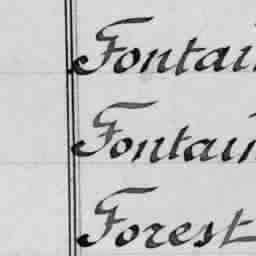 Fontai
Fontain
Forest